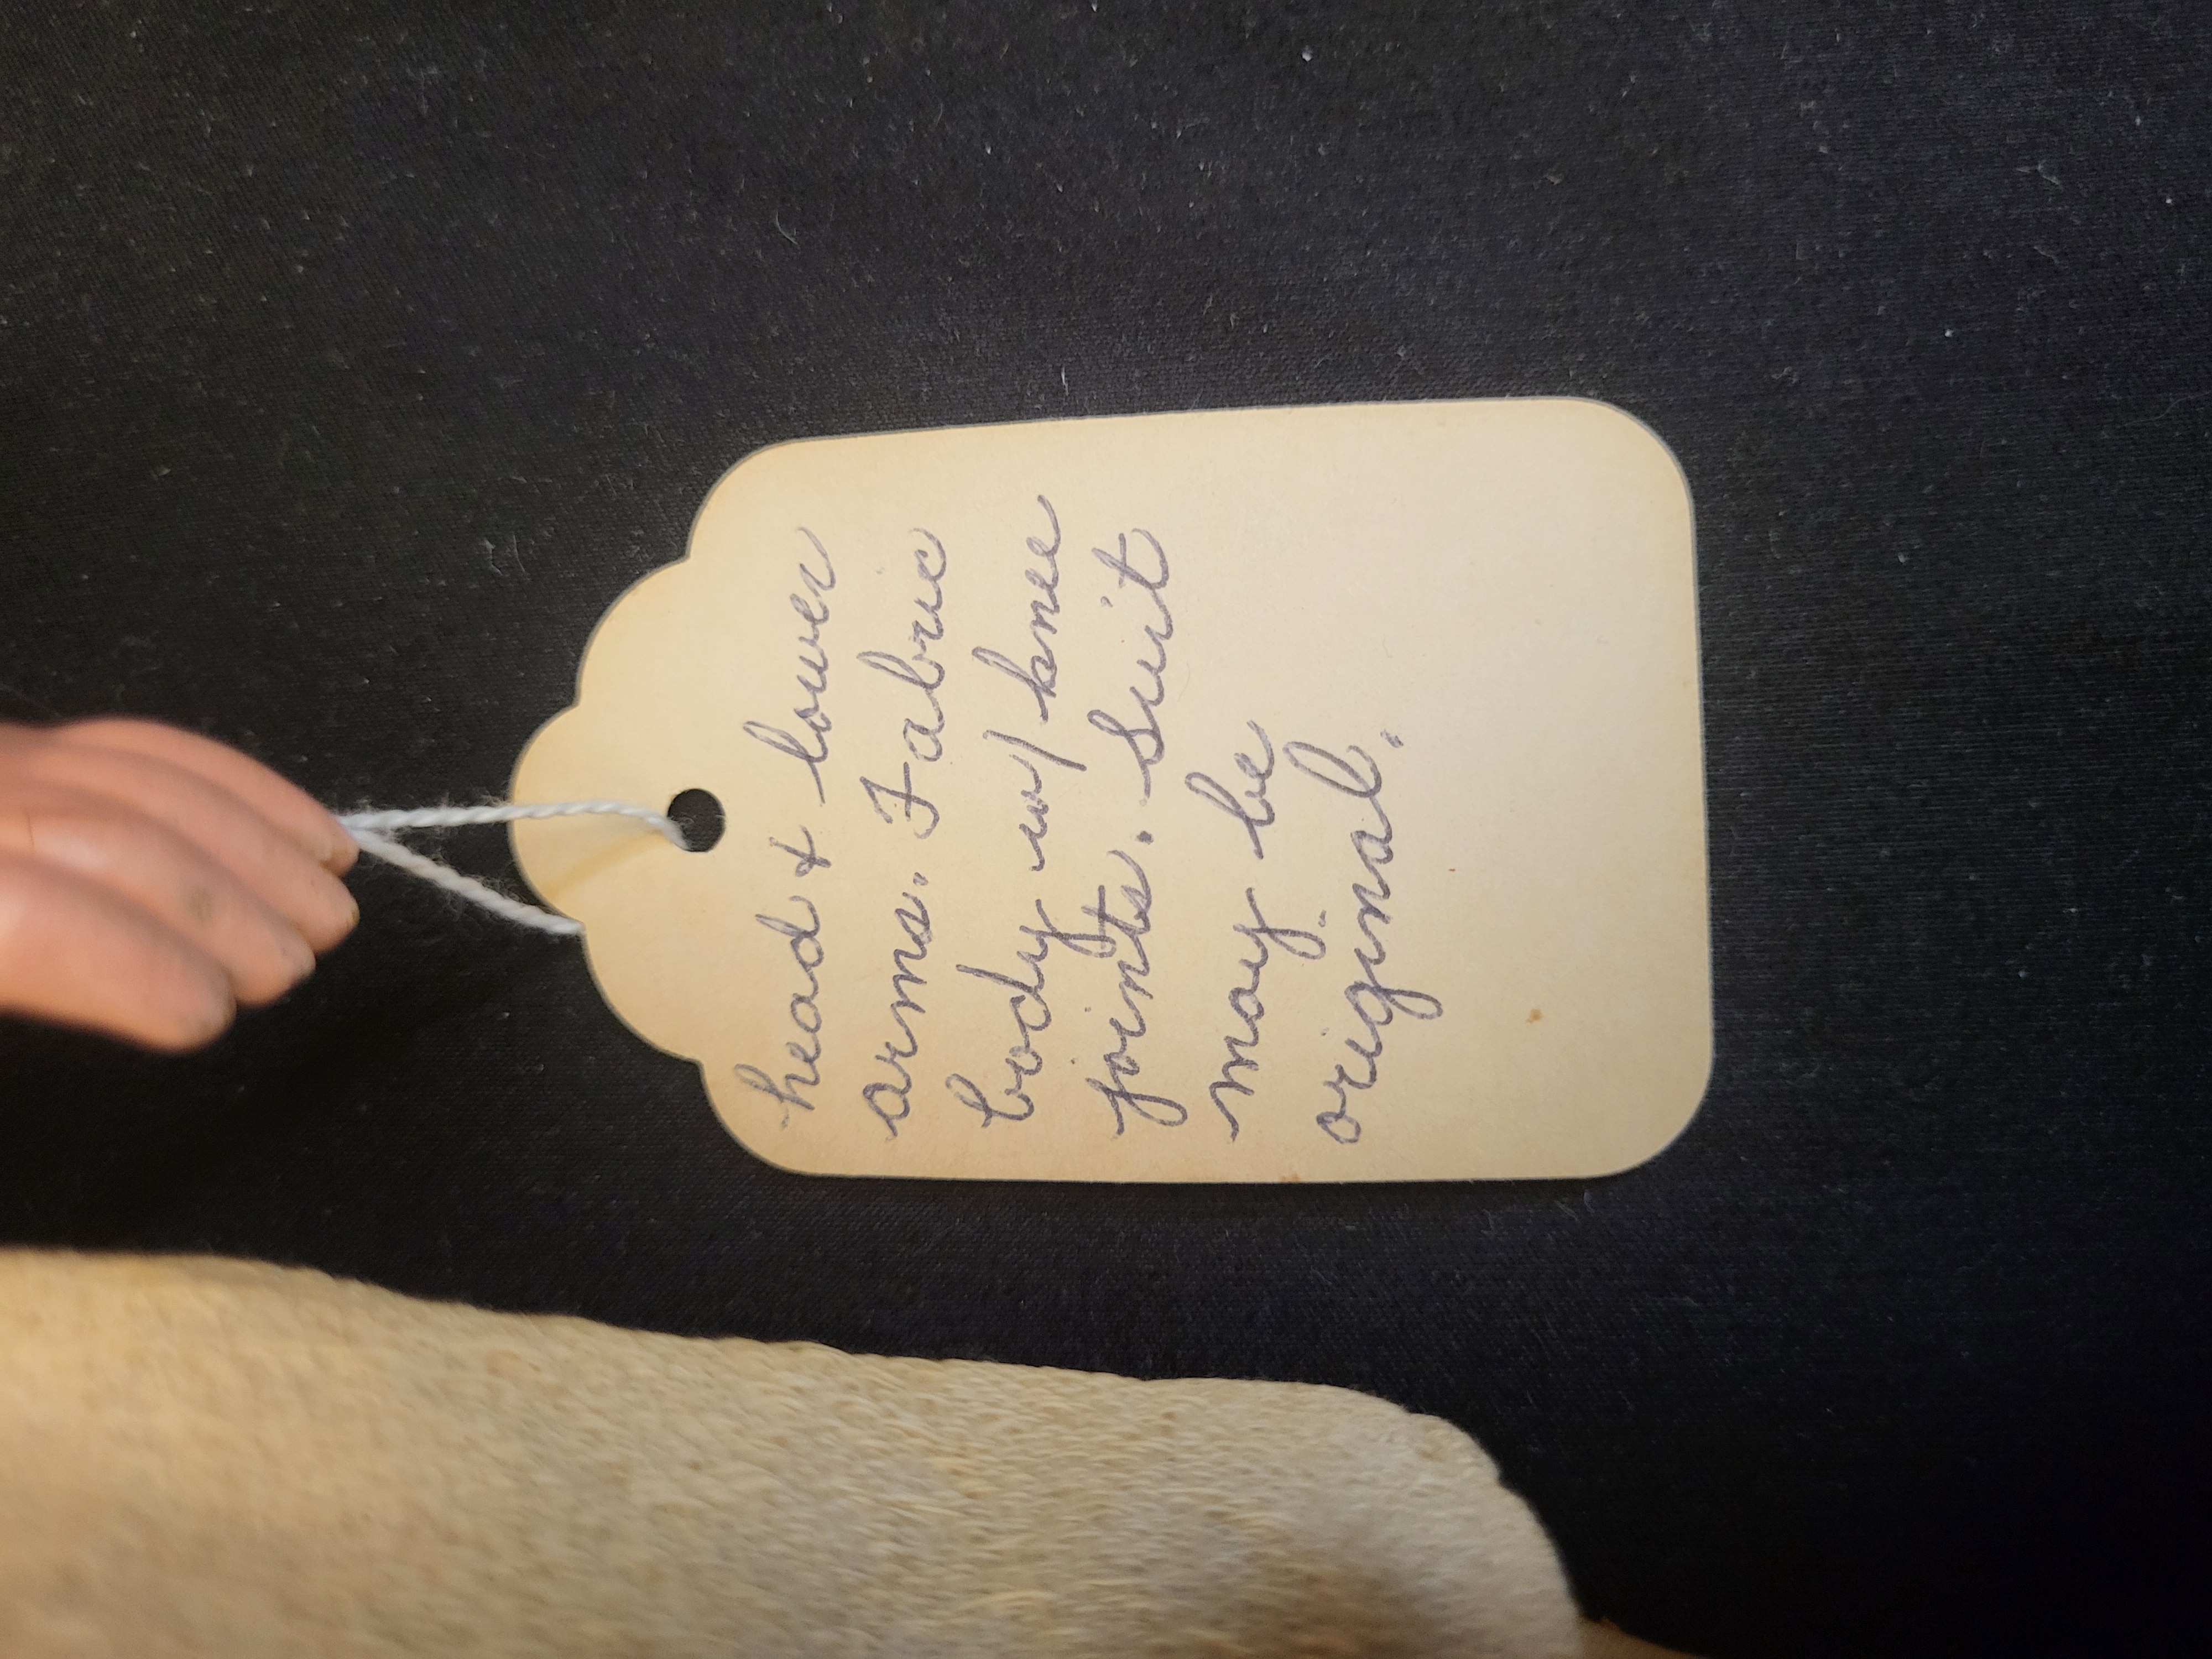 head & lower
arms. Fabric
body w/ knee
joints. Suit
may be
original.